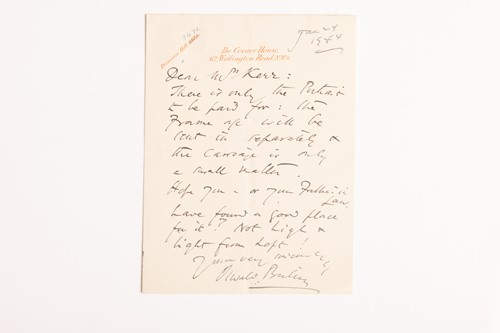 Primrose Hill
The Corner House,
62, Wellington Road, N.W.8.
Jan 24
1944
Dear Mrs Kerr:
There is only the Portrait
to be paid for: the
Frame a/c will be
sent in separately &
the carriage is only
a small matter.
Hope you - or your Father in
Law
have found a good place
for it! Not high &
light from left!
Yours very sincerely
Oswald Birley